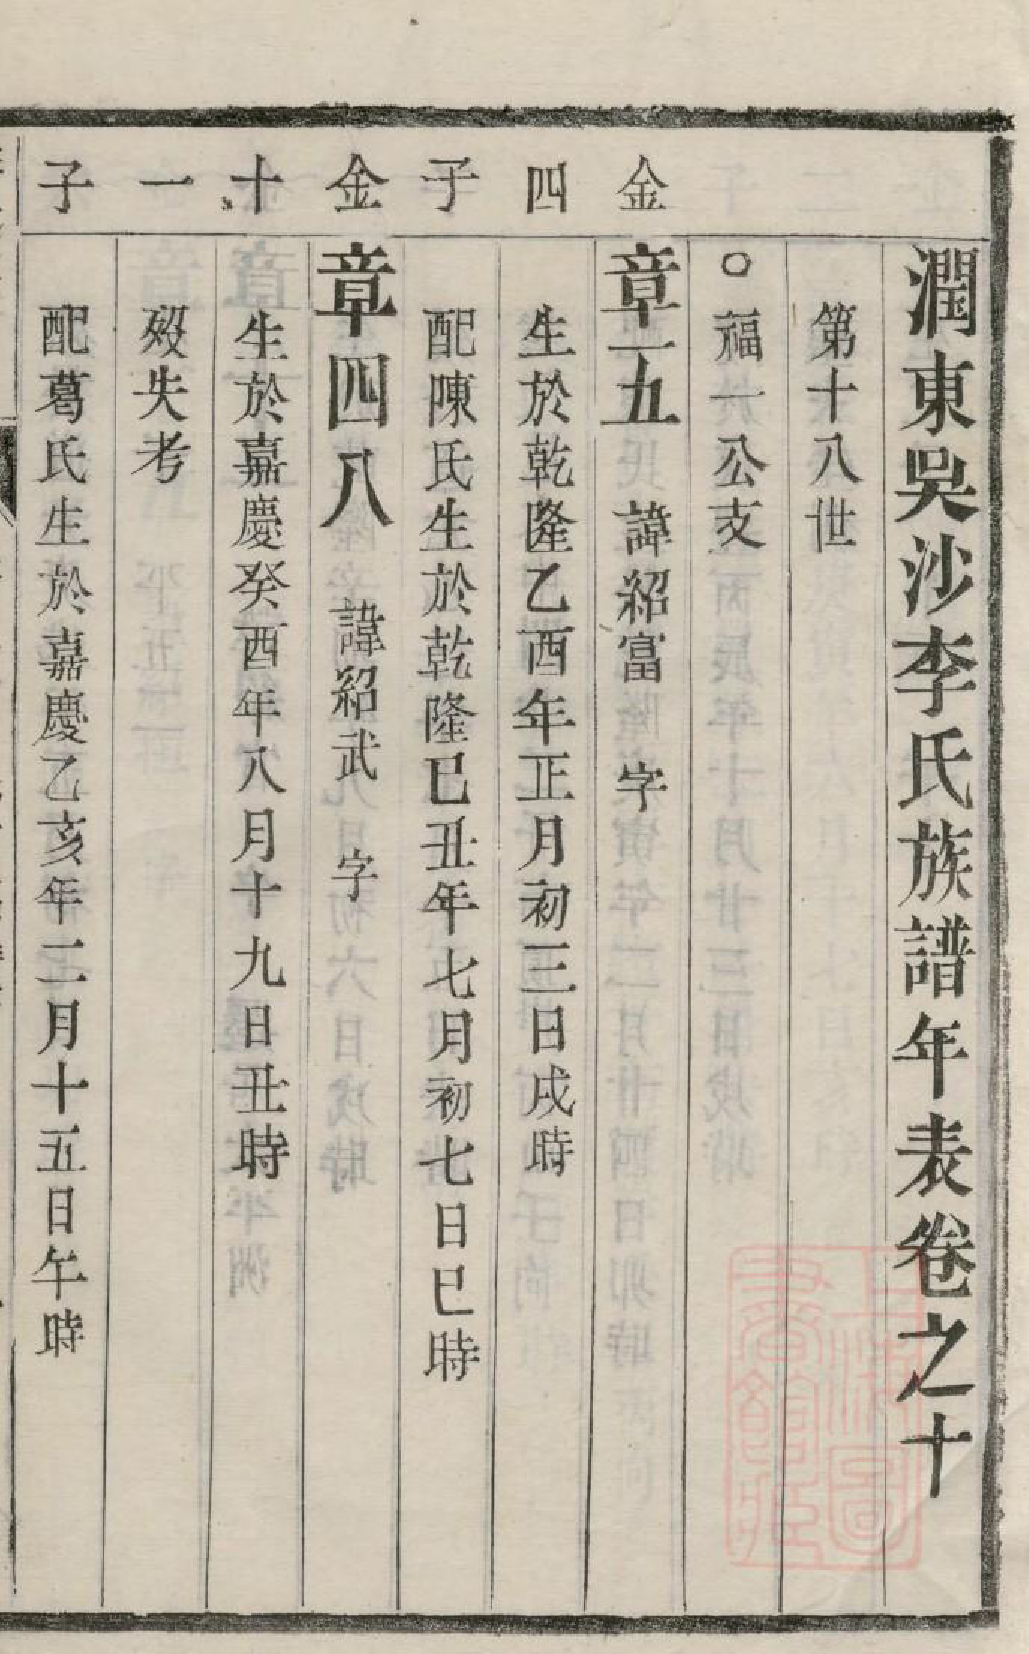 潤東吳沙李氏族譜年表卷之十
第十八世
○福一公支
金
章五 諱紹富 字
四
生於乾隆乙酉年正月初三日戌時
子
配陳氏生於乾隆巳丑年七月初七日巳時
金
章四八 諱紹武 字
十
生於嘉慶癸酉年八月十九日丑時
一
歿失考
子
配葛氏生於嘉慶乙亥年二月十五日午時
上海圖書館藏